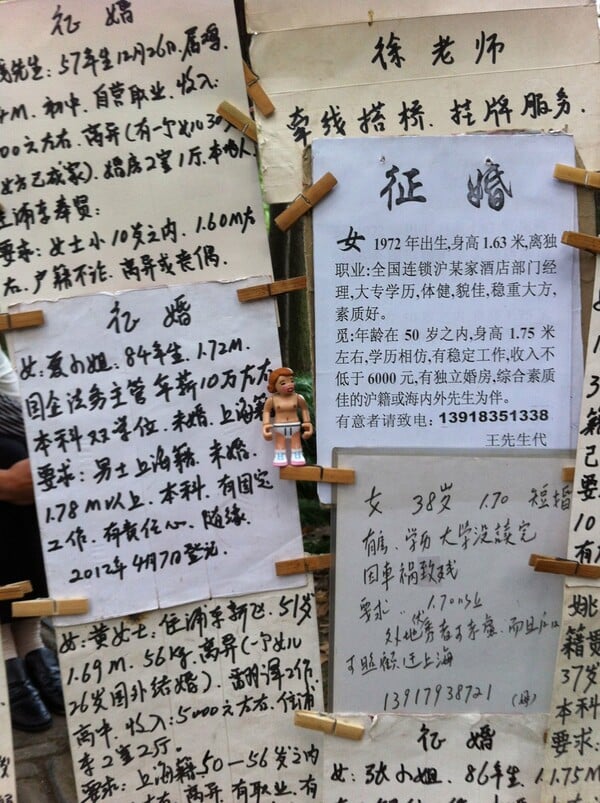 征 婚
先生:57年生12月26日.属鸡.
M.初中.自营职业.收入
00元左右.离异(有一个女儿30
女方已成家).婚房2室1厅.本地人.
住浦东奉贤:
要求:女士小10岁之内.1.60M左
右.户籍不论.离异或丧偶.
徐老师
牵线搭桥.挂牌服务.
征 婚
女 1972 年出生,身高 1.63 米,离独
职业:全国连锁沪某家酒店部门经
理,大专学历,体健,貌佳,稳重大方,
素质好。
觅:年龄在 50 岁之内,身高 1.75 米
左右,学历相仿,有稳定工作,收入不
低于 6000 元,有独立婚房,综合素质
佳的沪籍或海内外先生为伴。
有意者请致电:13918351338
王先生代
征 婚
女:夏小姐.84年生.1.72M.
国企法务主管 年薪10万左右
本科双学位.未婚.上海籍
要求:男士上海籍.未婚.
1.78M以上.本科.有固定
工作.有责任心.随缘.
2012年4月7日登记.
女 38岁 1.70 短婚
有房、学历 大学没读完
因车祸致残
要求 1.70以上
外地优秀者可考虑.而且后
可照顾迁上海
13917938721 (妈)
女:黄女士:住浦东新区.51岁
1.69M.56kg.离异(一个女儿
26岁国外结婚).翻译工作.
高中.收入:5000元左右.住浦
东2室2厅.
要求:上海籍.50—56岁之内
左右.离异.有职业.有
征 婚
女:张小姐.86年生.
姚
籍贯
37岁
本科
要求:
1.75M